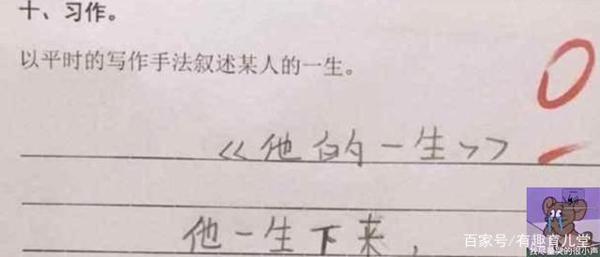 十、习作。
以平时的写作手法叙述某人的一生。
0
《他的一生》
他一生下来，
百家号/有趣育儿堂
我尽量哭的很小声